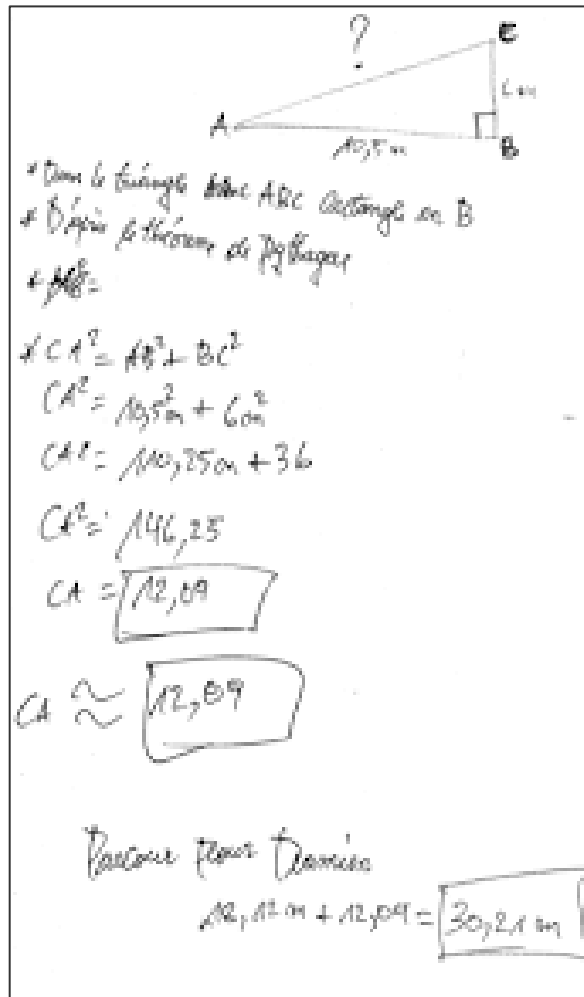 ?
C
A
6 m
10,5 m
B
* Dans le triangle ABC rectangle en B
* D'après le théorème de Pythagore
* CA² = AB² + BC²
CA² = 10,5²m + 6m²
CA² = 110,25m + 36
CA² = 146,25
CA = 12,09
CA ≈ 12,09
Parcour pour
12 m + 12,09 = 30,21 m